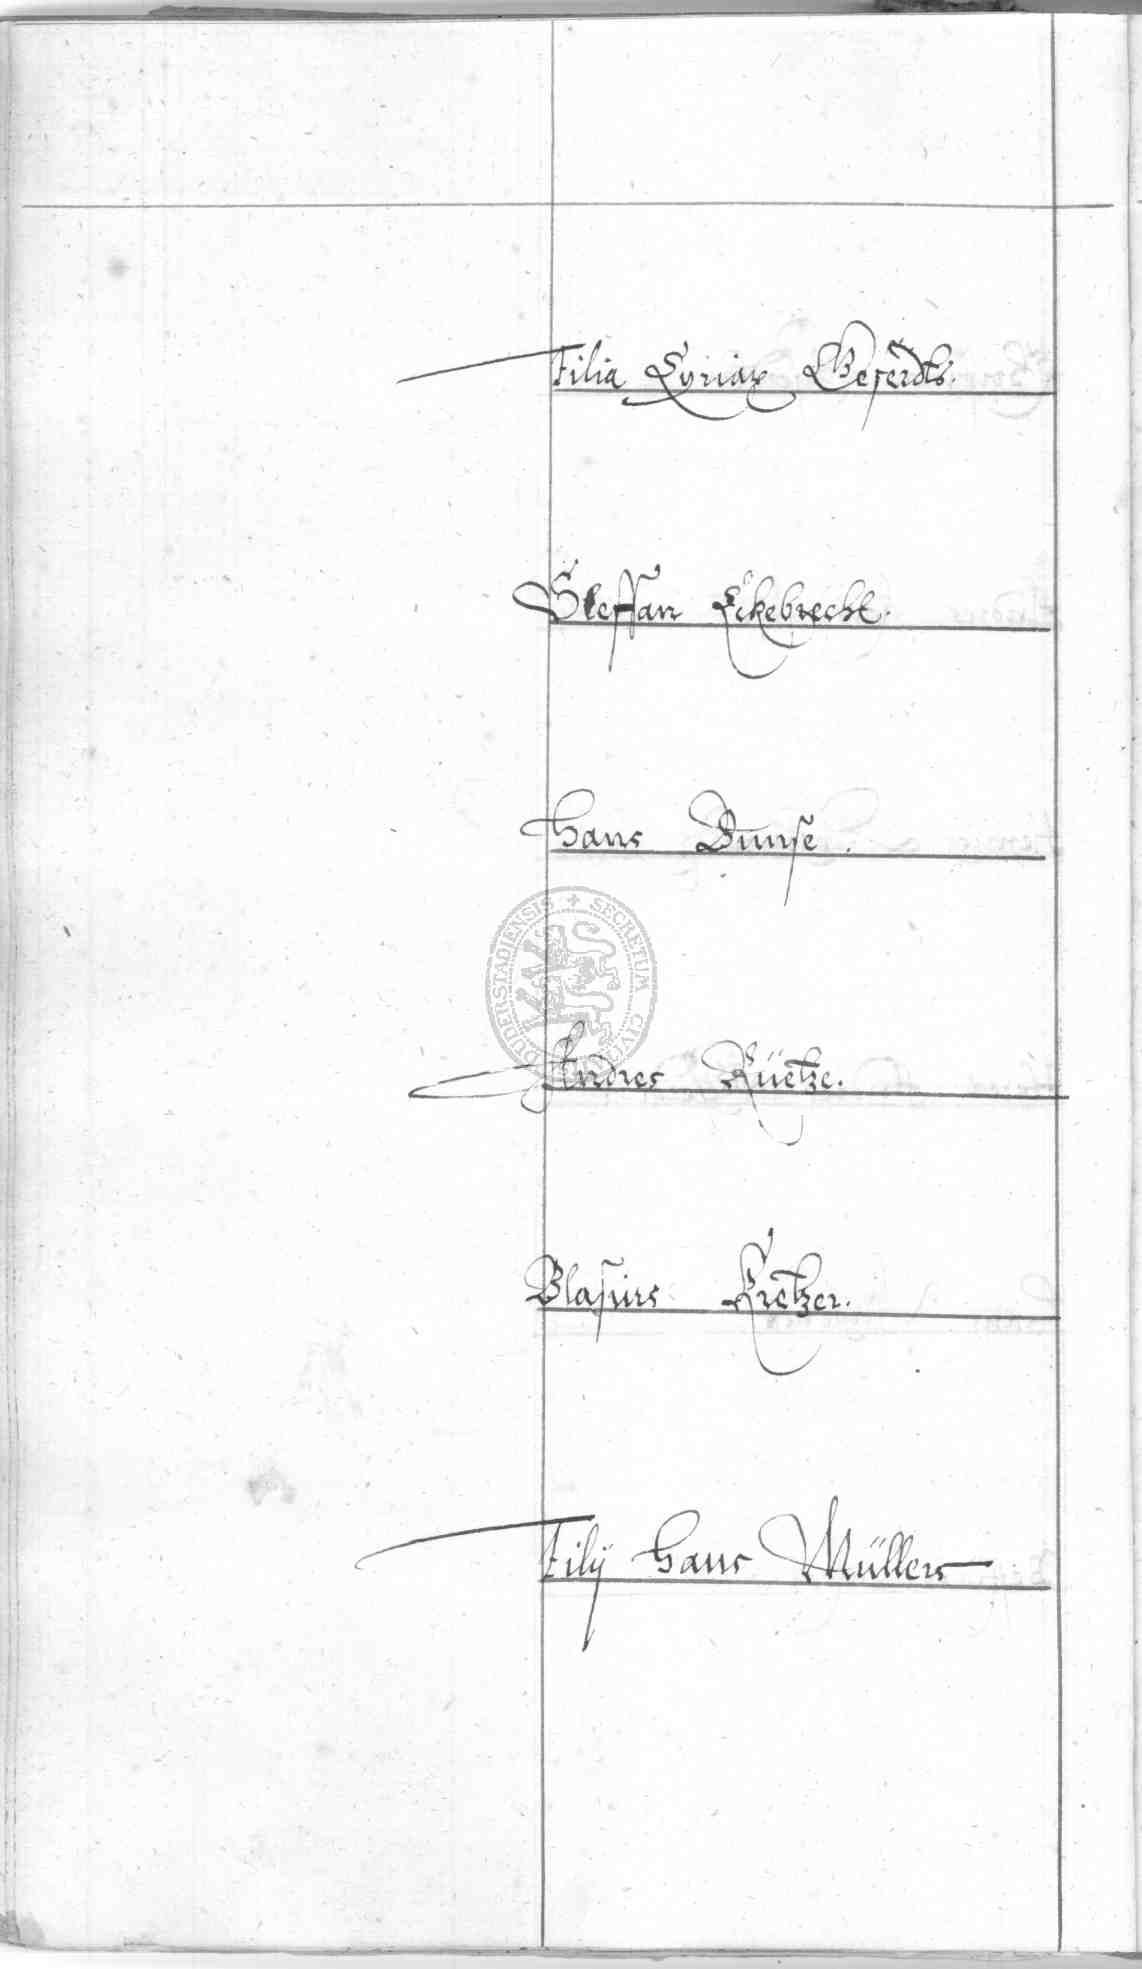 Filia Cyriax Geferdts.
Steffan Eckebrecht.
Hans Dunse.
DUDERSTADIENSIS + SECRETUM CIVIT
Andres Küetze.
Blasius Kretzer.
Filij Hans Müllers